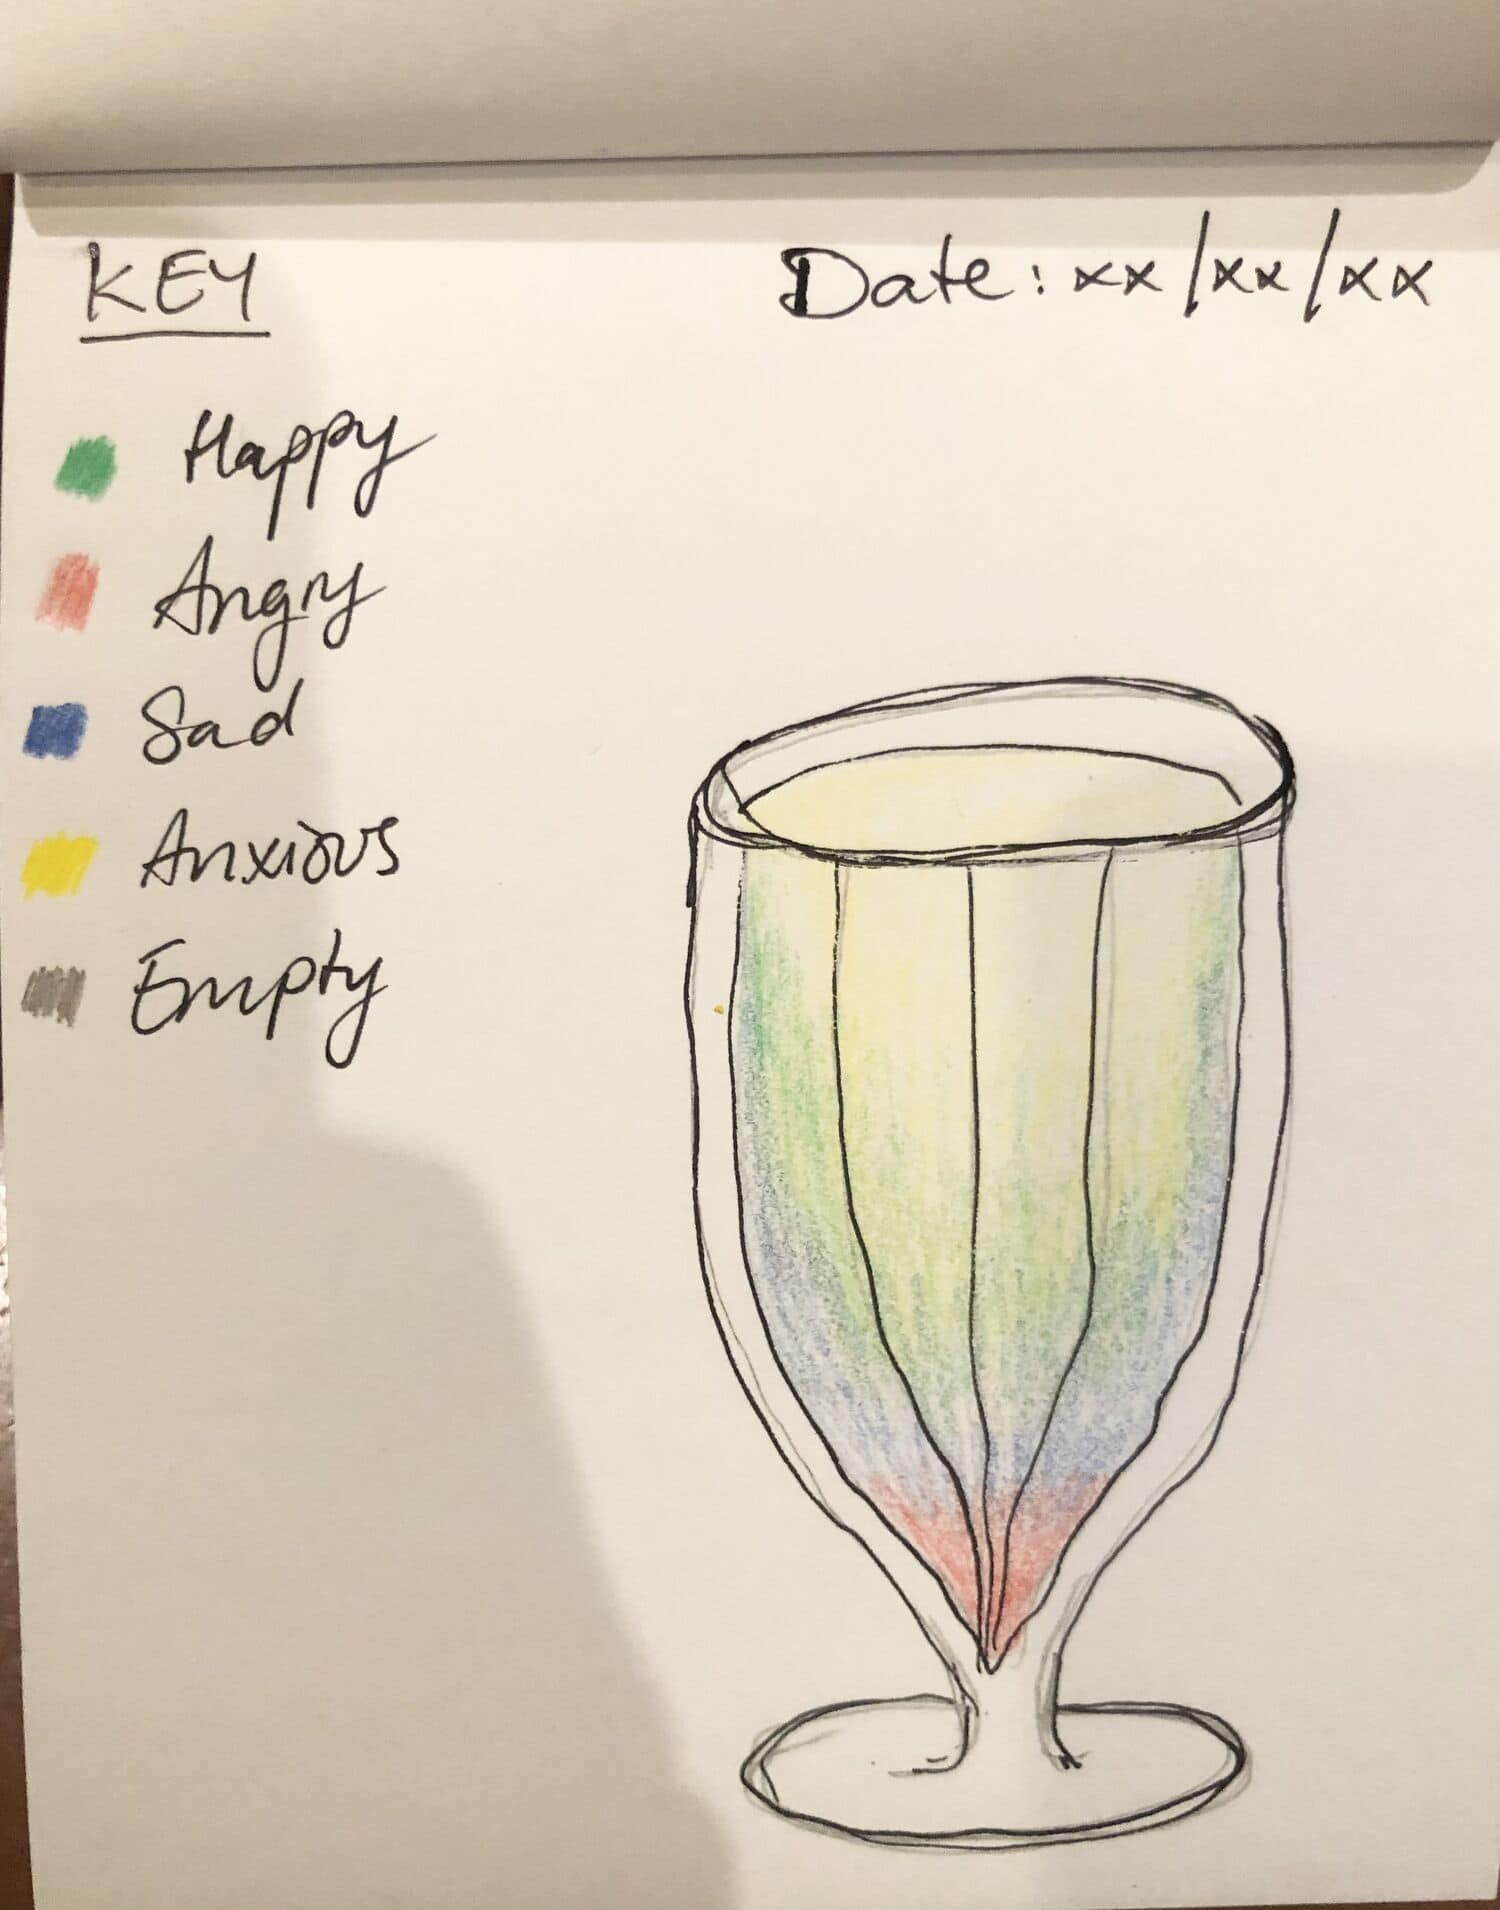 KEY
Date: xx/xx/xx
Happy
Angry
Sad
Anxious
Empty